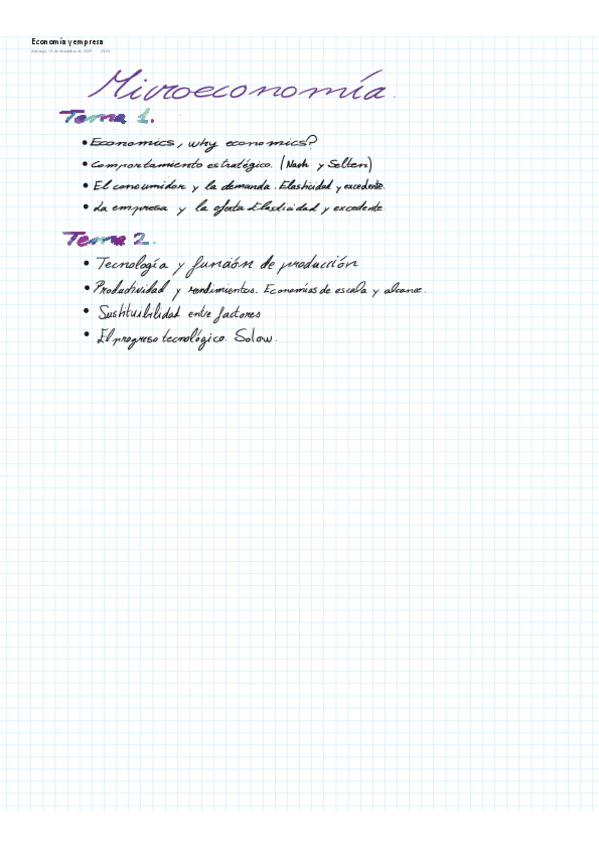 Economía y empresa
Microeconomía.
Tema 1.
• Economics, why economics?
• Comportamiento estratégico. (Nash y Selten)
• El consumidor y la demanda. Elasticidad y excedente.
• La empresa y la oferta Elasticidad y excedente.
Tema 2.
• Tecnología y función de producción
• Productividad y rendimientos. Economías de escala y alcance.
• Sustituibilidad entre factores
• El progreso tecnológico. Solow.